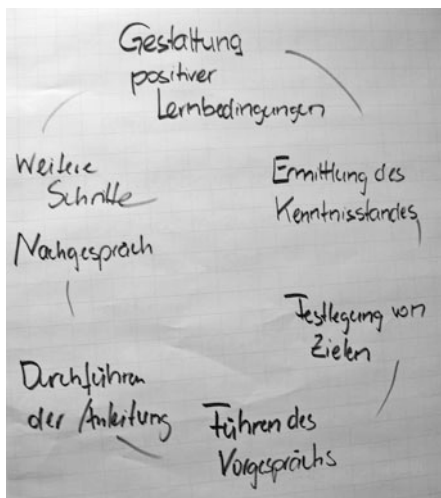 Gestaltung
positiver
Lernbedingungen
Ermittlung des
Kenntnisstandes
Festlegung von
Zielen
Führen des
Vorgesprächs
Durchführen
der Anleitung
Nachgespräch
Weitere
Schritte